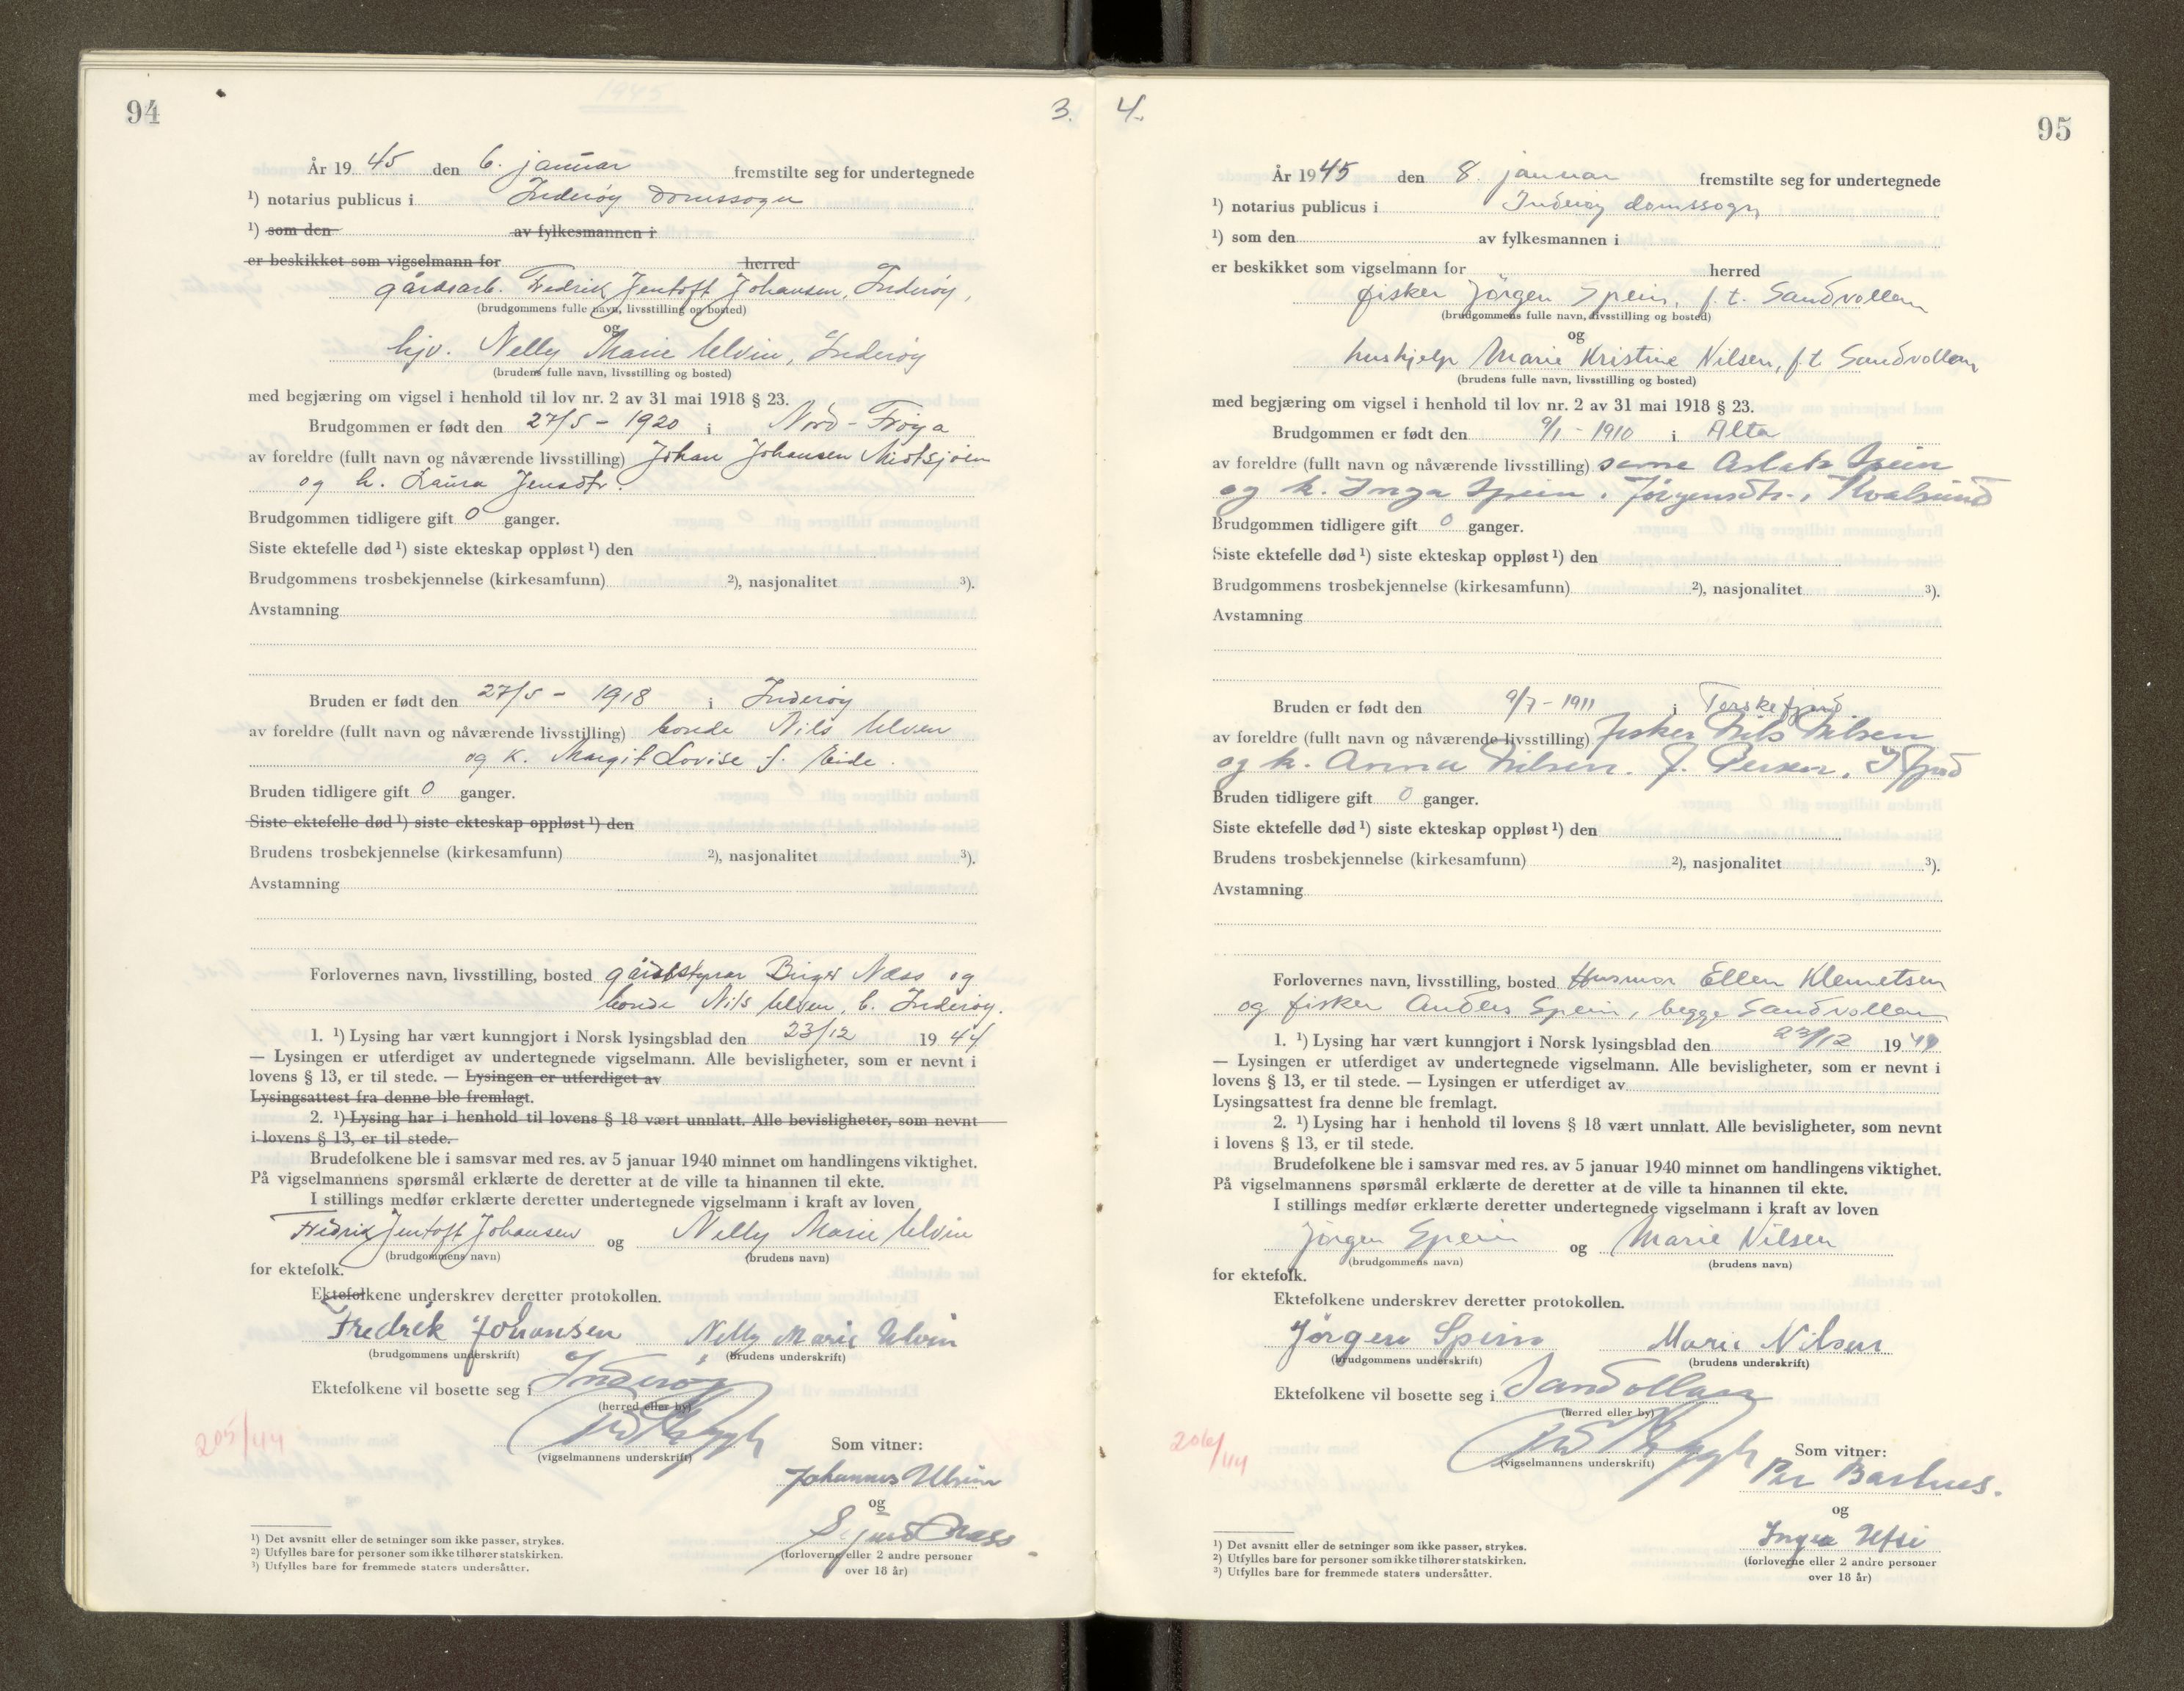 1945
94
3.
År 1945 den 6. januar fremstilte seg for undertegnede
¹) notarius publicus i Inderøy domssogn
¹) som den av fylkesmannen i
er beskikket som vigselmann for herred
gårdsarb. Fredrik Jentoft Johansen, Inderøy,
(brudgommens fulle navn, livsstilling og bosted)
og
hjv. Nelly Marie Ulvin, Inderøy
(brudens fulle navn, livsstilling og bosted)
med begjæring om vigsel i henhold til lov nr. 2 av 31 mai 1918 § 23.
Brudgommen er født den 27/5 - 1920 i Nord-Frøya
av foreldre (fullt navn og nåværende livsstilling) Johan Johansen
og h. Laura Jensdtr.
Brudgommen tidligere gift 0 ganger.
Siste ektefelle død ¹) siste ekteskap oppløst ¹) den
Brudgommens trosbekjennelse (kirkesamfunn) ²), nasjonalitet ³).
Avstamning
Bruden er født den 27/5 - 1918 i Inderøy
av foreldre (fullt navn og nåværende livsstilling) bonde Nils Ulven
og k. Margit Lovise f. Eide.
Bruden tidligere gift 0 ganger.
Siste ektefelle død ¹) siste ekteskap oppløst ¹) den
Brudens trosbekjennelse (kirkesamfunn) ²), nasjonalitet ³).
Avstamning
Forlovernes navn, livsstilling, bosted gårdsstyrar Birger Næss og
bonde Nils Ulven, b. Inderøy.
1. ¹) Lysing har vært kunngjort i Norsk lysingsblad den 23/12 1944
— Lysingen er utferdiget av undertegnede vigselmann. Alle bevisligheter, som er nevnt i
lovens § 13, er til stede. — Lysingen er utferdiget av
Lysingsattest fra denne ble fremlagt.
2. ¹) Lysing har i henhold til lovens § 18 vært unnlatt. Alle bevisligheter, som nevnt
i lovens § 13, er til stede.
Brudefolkene ble i samsvar med res. av 5 januar 1940 minnet om handlingens viktighet.
På vigselmannens spørsmål erklærte de deretter at de ville ta hinannen til ekte.
I stillings medfør erklærte deretter undertegnede vigselmann i kraft av loven
Fredrik Jentoft Johansen og Nelly Marie Ulvin
(brudgommens navn) (brudens navn)
for ektefolk.
Ektefolkene underskrev deretter protokollen.
Fredrik Johansen Nelly Marie Ulvin
(brudgommens underskrift) (brudens underskrift)
Ektefolkene vil bosette seg i Inderøy
(herred eller by)
205/44
(vigselmannens underskrift)
Som vitner:
Johannes Ulvin
og
(forloverne eller 2 andre personer
over 18 år)
¹) Det avsnitt eller de setninger som ikke passer, strykes.
²) Utfylles bare for personer som ikke tilhører statskirken.
³) Utfylles bare for fremmede staters undersåtter.
4.
95
År 1945 den 8. januar fremstilte seg for undertegnede
¹) notarius publicus i Inderøy domssogn
¹) som den av fylkesmannen i
er beskikket som vigselmann for herred
fisker Jørgen Spein, f. t. Sandvollan
(brudgommens fulle navn, livsstilling og bosted)
og
hushjelp Marie Kristine Nilsen, f t. Sandvollan
(brudens fulle navn, livsstilling og bosted)
med begjæring om vigsel i henhold til lov nr. 2 av 31 mai 1918 § 23.
Brudgommen er født den 9/1 - 1910 i Alta
av foreldre (fullt navn og nåværende livsstilling) same Aslak Spein
og k. Inga Spein, Jørgensdtr., Kvalsund
Brudgommen tidligere gift 0 ganger.
Siste ektefelle død ¹) siste ekteskap oppløst ¹) den
Brudgommens trosbekjennelse (kirkesamfunn) ²), nasjonalitet ³).
Avstamning
Bruden er født den 9/7 - 1911 i Torskefjord
av foreldre (fullt navn og nåværende livsstilling) fisker Nils Nilsen
og k. Anna Nilsen. f. Persen, Ifjord
Bruden tidligere gift 0 ganger.
Siste ektefelle død ¹) siste ekteskap oppløst ¹) den
Brudens trosbekjennelse (kirkesamfunn) ²), nasjonalitet ³).
Avstamning
Forlovernes navn, livsstilling, bosted Husmor Ellen Klemetsen
og fisker Anders Spein, begge Sandvollan
1. ¹) Lysing har vært kunngjort i Norsk lysingsblad den 23/12 1944
— Lysingen er utferdiget av undertegnede vigselmann. Alle bevisligheter, som er nevnt i
lovens § 13, er til stede. — Lysingen er utferdiget av
Lysingsattest fra denne ble fremlagt.
2. ¹) Lysing har i henhold til lovens § 18 vært unnlatt. Alle bevisligheter, som nevnt
i lovens § 13, er til stede.
Brudefolkene ble i samsvar med res. av 5 januar 1940 minnet om handlingens viktighet.
På vigselmannens spørsmål erklærte de deretter at de ville ta hinannen til ekte.
I stillings medfør erklærte deretter undertegnede vigselmann i kraft av loven
Jørgen Spein og Marie Nilsen
(brudgommens navn) (brudens navn)
for ektefolk.
Ektefolkene underskrev deretter protokollen.
Jørgen Spein Marie Nilsen
(brudgommens underskrift) (brudens underskrift)
Ektefolkene vil bosette seg i Sandvollan
(herred eller by)
206/44
(vigselmannens underskrift)
Som vitner:
Per
og
Inga Utsi
(forloverne eller 2 andre personer
over 18 år)
¹) Det avsnitt eller de setninger som ikke passer, strykes.
²) Utfylles bare for personer som ikke tilhører statskirken.
³) Utfylles bare for fremmede staters undersåtter.